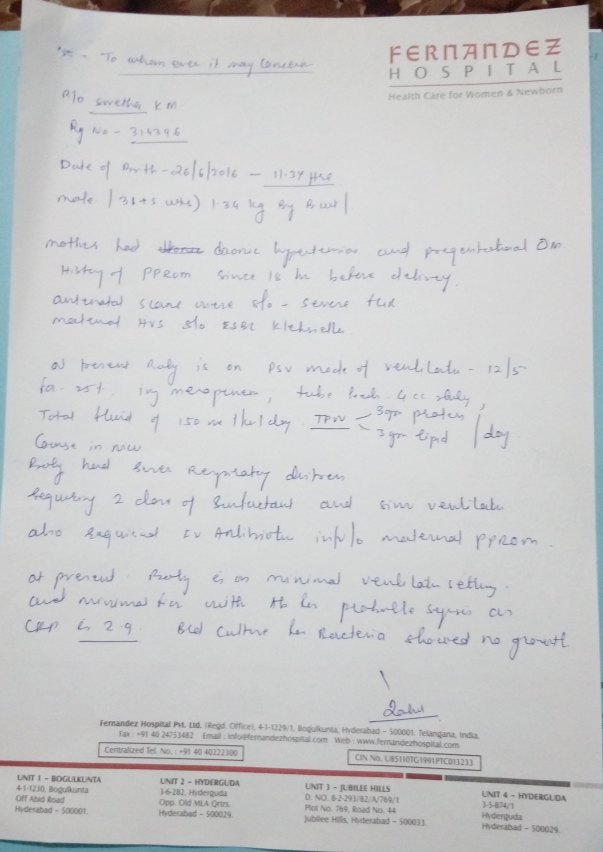 To whom ever it may Concern
FERNANDEZ
HOSPITAL
Health Care for Women & Newborn
B/o Swetha K M
Rg No - 314396
Date of Birth - 26/6/2016 - 11.37 Hrs
male 1.34 kg By B wt
mother had cronic hypertension and pregestational Dm.
History of PPROM since 18 hr before delivery.
antenatal scans were s/o - severe
maternal HVS s/o ESBL Klebsiella
at present Baby is on PSV mode of ventilator - 12/5
Inj meropenem, tube feeds 4 cc
Total fluid of 150 ml/kg/day. TPN 3gm protein
3gm lipid /day
Course in NICU
Baby had severe Respiratory distress
requiring 2 doses of Surfactant and simv ventilator
also required IV Antibiotics i/v/o maternal PPROM.
at present Baby is on minimal ventilator setting.
and minimal with probable sepsis as
CRP is 2.9. Bld culture for Bacteria showed no growth
Fernandez Hospital Pvt. Ltd. (Regd. Office), 4-1-1229/1, Bogulkunta, Hyderabad - 500001. Telangana, India.
Fax : +91 40 24753482 Email : info@fernandezhospital.com Web : www.fernandezhospital.com
Centralized Tel. No. : +91 40 40222300
CIN No. U85110TG1991PTC013233
UNIT 1 - BOGULKUNTA
4-1-1230, Bogulkunta
Off Abid Road
Hyderabad - 500001.
UNIT 2 - HYDERGUDA
3-6-282, Hyderguda
Opp. Old MLA Qrtrs.
Hyderabad - 500029.
UNIT 3 - JUBILEE HILLS
D. NO. 8-2-293/82/A/769/1
Plot No. 769, Road No. 44
Jubilee Hills, Hyderabad - 500033.
UNIT 4 - HYDERGUDA
3-5-874/1
Hyderguda
Hyderabad - 500029.